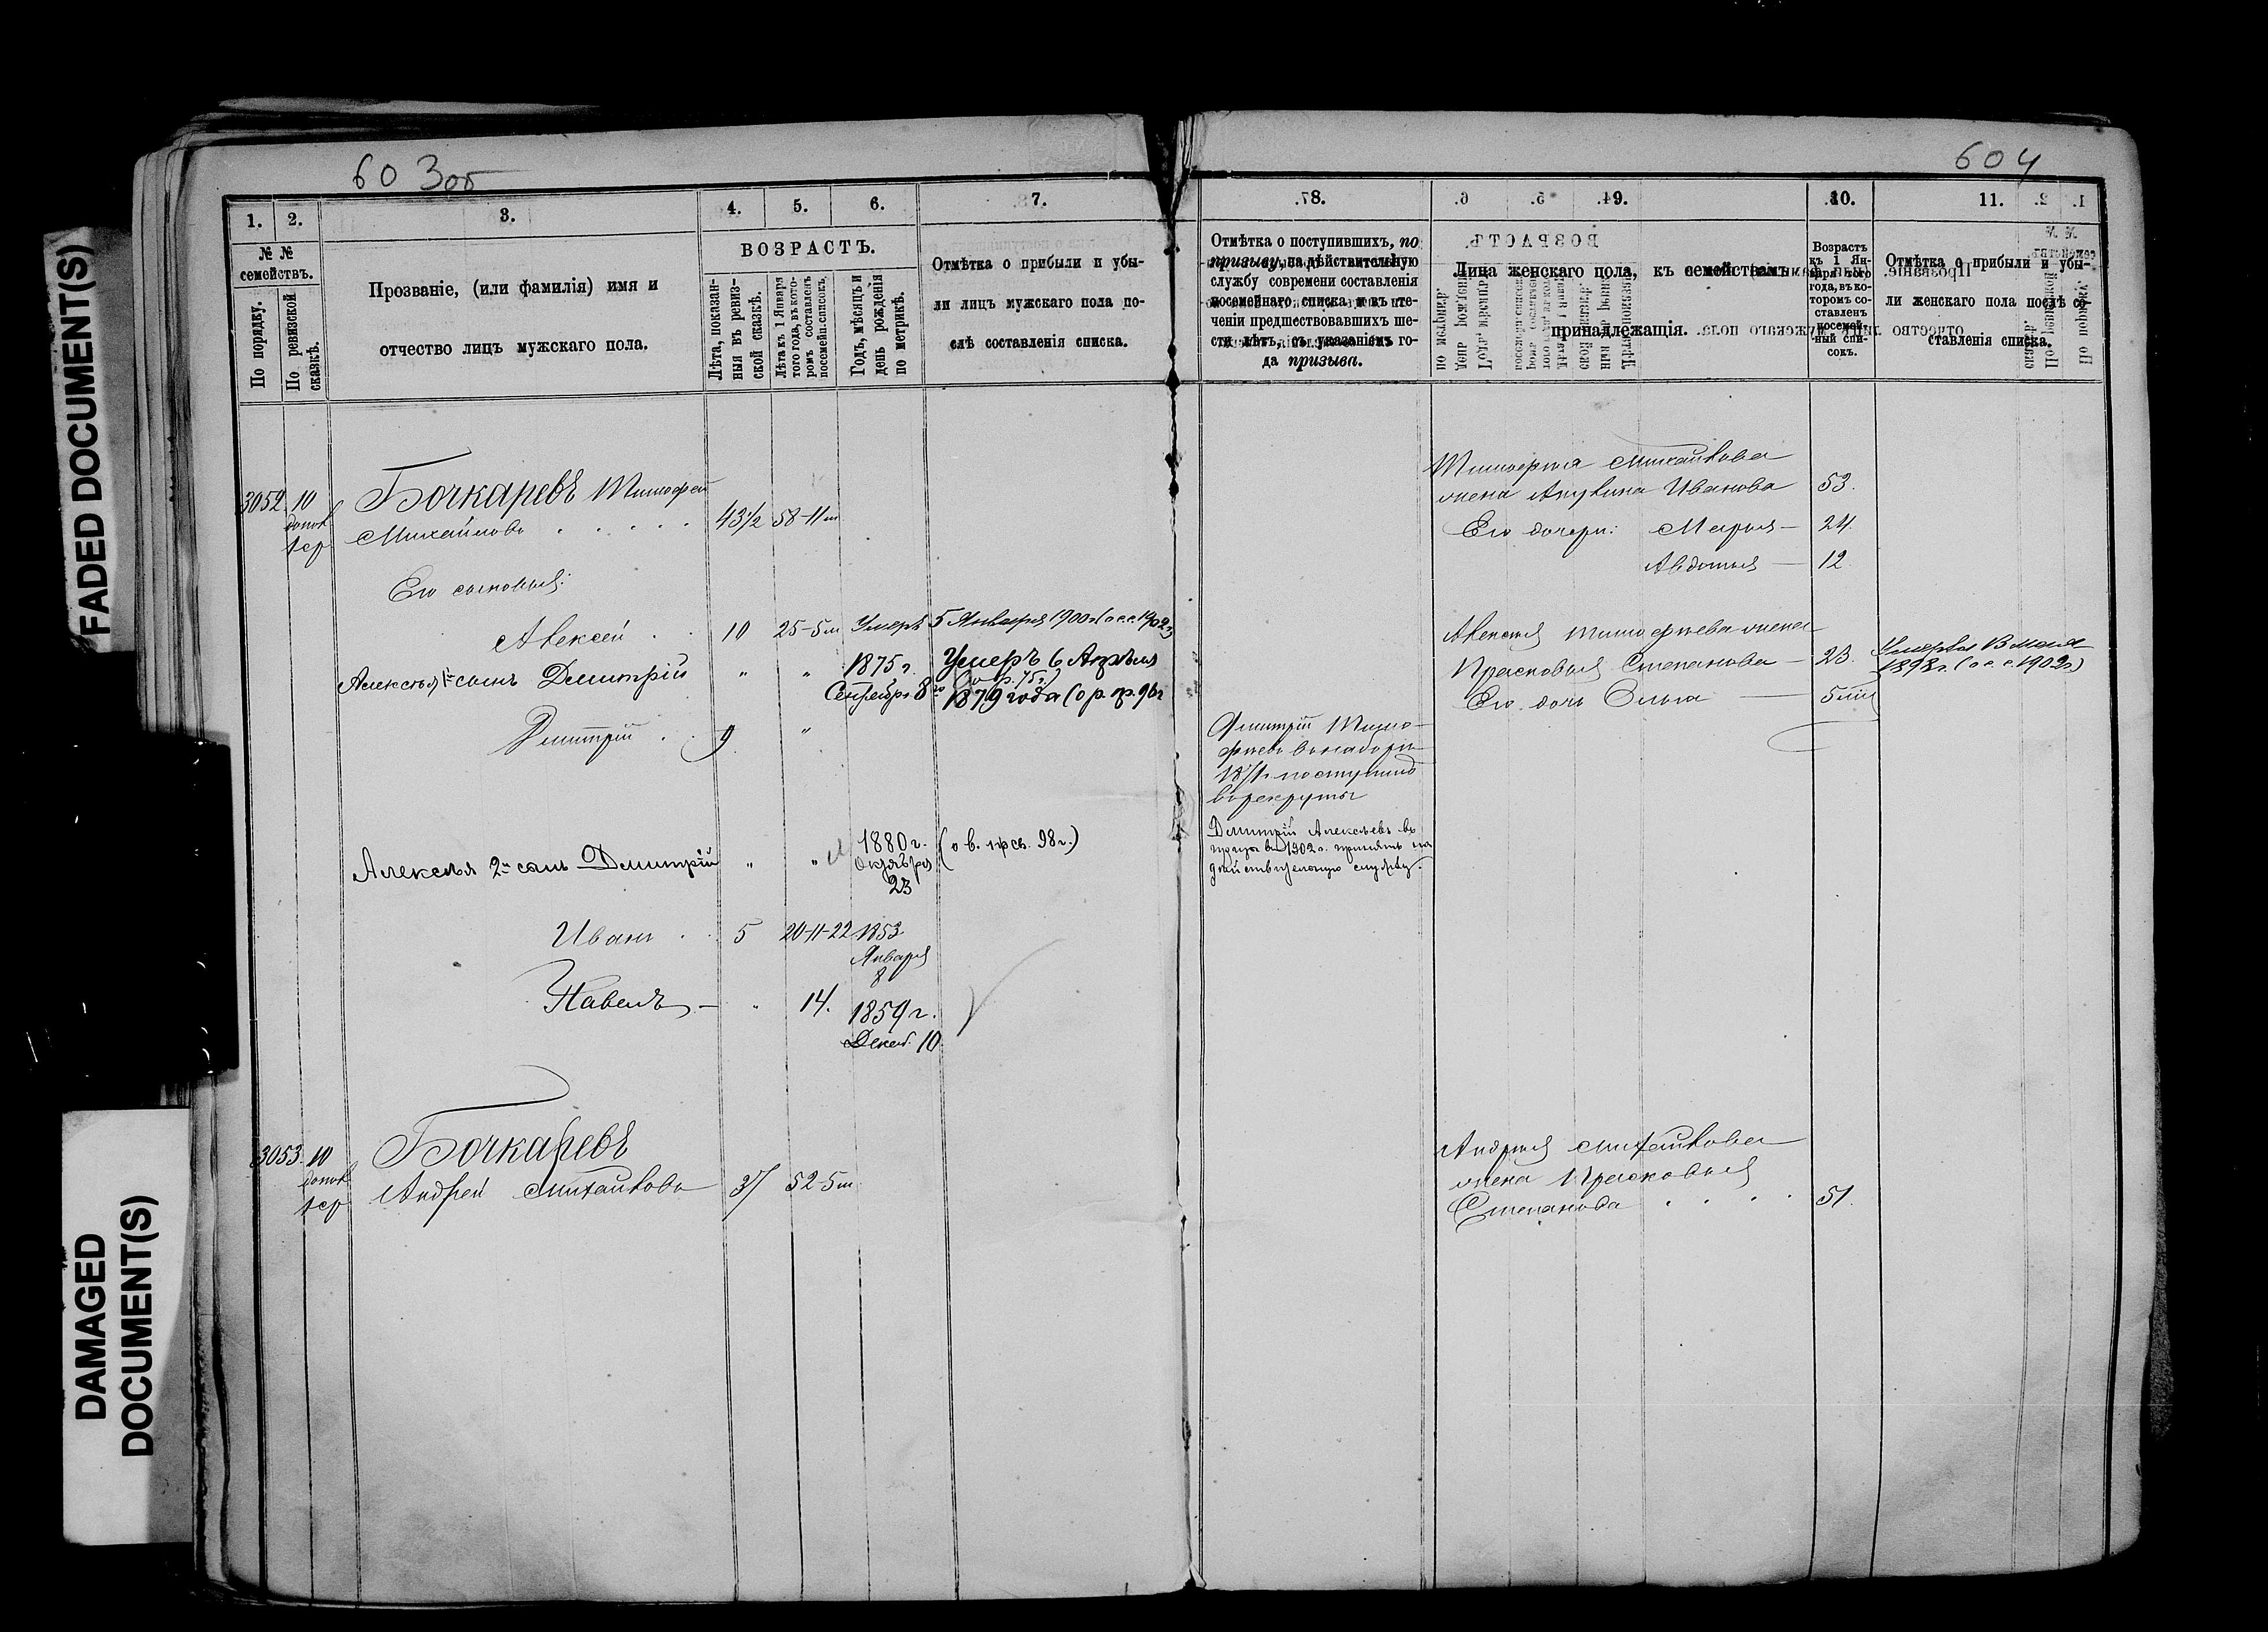 FADED DOCUMENT(S)
DAMAGED
DOCUMENT(S)
603об
1. 2. 3. 4. 5. 6. 7.
№ №
семействъ.
По порядку.
По ревизской
сказкѣ.
Прозваніе, (или фамилія) имя и
отчество лицъ мужскаго пола.
ВОЗРАСТЪ.
Лѣта, показан-
ныя въ ревиз-
ской сказкѣ.
Лѣта къ 1 Января
того года, въ кото-
ромъ составленъ
посемейн. списокъ.
Годъ, мѣсяцъ и
день рожденія
по метрикѣ.
Отмѣтка о прибыли и убы-
ли лицъ мужскаго пола по-
слѣ составленія списка.
3052. 10
Бочкаревъ Тимофей
Михайловъ 43½ 58-11м
Его сыновья:
Алексей 10 25-5м Умеръ 5 Января 1900г (о с.с. 1902г)
Алексѣя 1й сынъ Дмитрій " " 1875г. Сентября 8го
Умеръ 6 Апрѣля
1879 года (о р. пр. 96г
Дмитрій 9 "
Алексѣя 2й сынъ Дмитрій " " 1880г. (о в. прсв. 98г.)
Октября
23
Иванъ 5 20-11-22 1853
Января
8
Павелъ - " 14. 1859г.
Декаб. 10
3053. 10
Бочкаревъ
Андрей Михайловъ 37 52-5м
604
8. 9. 10. 11.
Отмѣтка о поступившихъ, по
призыву, на дѣйствительную
службу современи составленія
посемейнаго списка и въ те-
ченіи предшествовавшихъ ше-
сти лѣтъ, съ указаніемъ го-
да призыва.
Лица женскаго пола, къ семействамъ
принадлежащія.
Возрастъ
къ 1 Ян-
варя того
года, въ ко-
торомъ со-
ставленъ
посемей-
ный спи-
сокъ.
Отмѣтка о прибыли и убы-
ли женскаго пола послѣ со-
ставленія списка.
Тимофея Михайлова
жена Акулина Иванова 53.
Его дочери: Марья — 24.
Авдотья — 12.
Алексея Тимофеева жена
Прасковья Степанова — 23.
Умерла 13 мая
1898г. (о с.с. 1902г)
Его дочь Ольга — 5м
Дмитрій Тимо-
феевъ въ наборъ
1871г. поступилъ
въ рекруты
Дмитрій Алексѣевъ въ
призывъ 1902г. принятъ на
дѣйствительную службу.
Андрея Михайлова
жена Прасковья
Степанова 51.